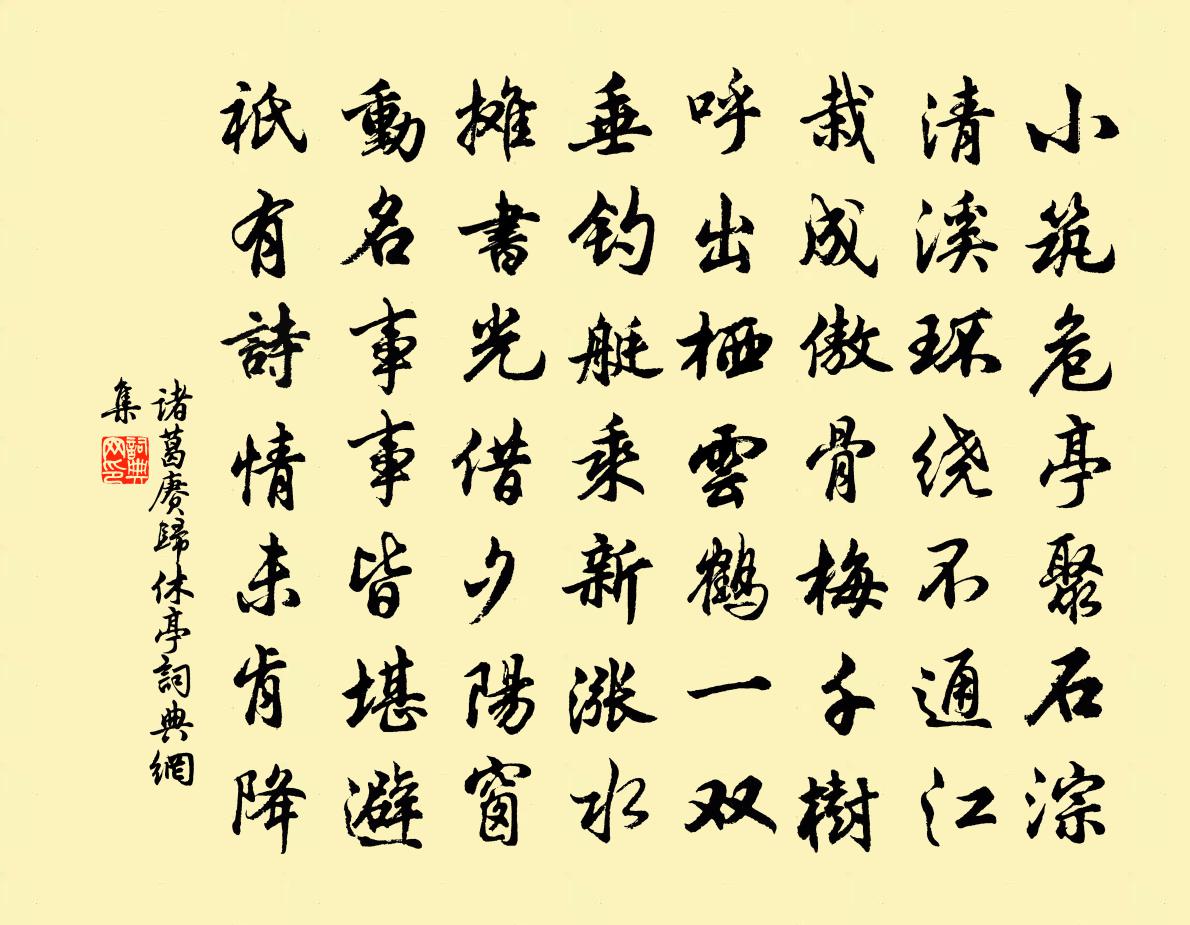 小筑危亭聚石淙
清溪环绕不通江
栽成傲骨梅千樹
呼出栖雲鶴一双
垂钓艇乘新涨水
摊書光借夕陽窗
動名事事皆堪避
衹有詩情未肯降
诸葛赓歸休亭詞典網
集
詞典
网印